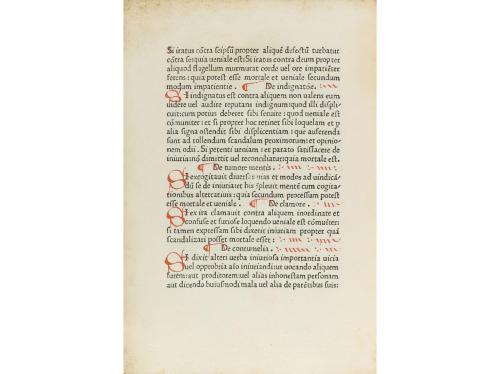 Si iratus cõtra seipsũ propter aliquẽ defectũ turbatur
cõtra se: quia ueniale est: Si iratus contra deum propter
aliquod flagellum murmurat corde uel ore impatiẽter
ferens: quia potest esse mortale et ueniale secundum
modum impatientie. De indignatõe.
Si indignatus est contra aliquem non ualens eum
uidere uel audire reputans indignum: quod illi displi
cuit: cum potius deberet sibi seruire: quod ueniale est
cõmuniter: et si propter hoc retinet sibi loquelam et
alia signa ostendit sibi displicentiam: que auferenda
sunt ad tollendum scandalum proximorum: et opinio
nem odii. Si petenti ueniam et parato satisfacere de
iniuria nõ dimittit uel reconciliatur: quia mortale est.
De tumore mentis.
Si excogitauit diuersas uias et modos ad uindicã
dũ se de iniuria: et his ĩpleuit mentẽ cum cogita
tionibus altercatiuis: quia secundum processum potest
esse mortale et ueniale. De clamore.
Si ex ira clamauit contra aliquem inordinate et
confuse et furiose loquendo ueniale est cõmuniter:
si tamen expressam sibi dixerit iniuriam propter quã
scandalizari posset mortale esset:
De contumelia.
Si dixit alteri uerba iniuriosa importantia uicia
uel opprobria aĩo iniuriandi: ut uocando aliquem
furem: aut proditorem: uel alias inhonestam personam
aut dicendo huiusmodi mala uel alia de parẽtibus suis: